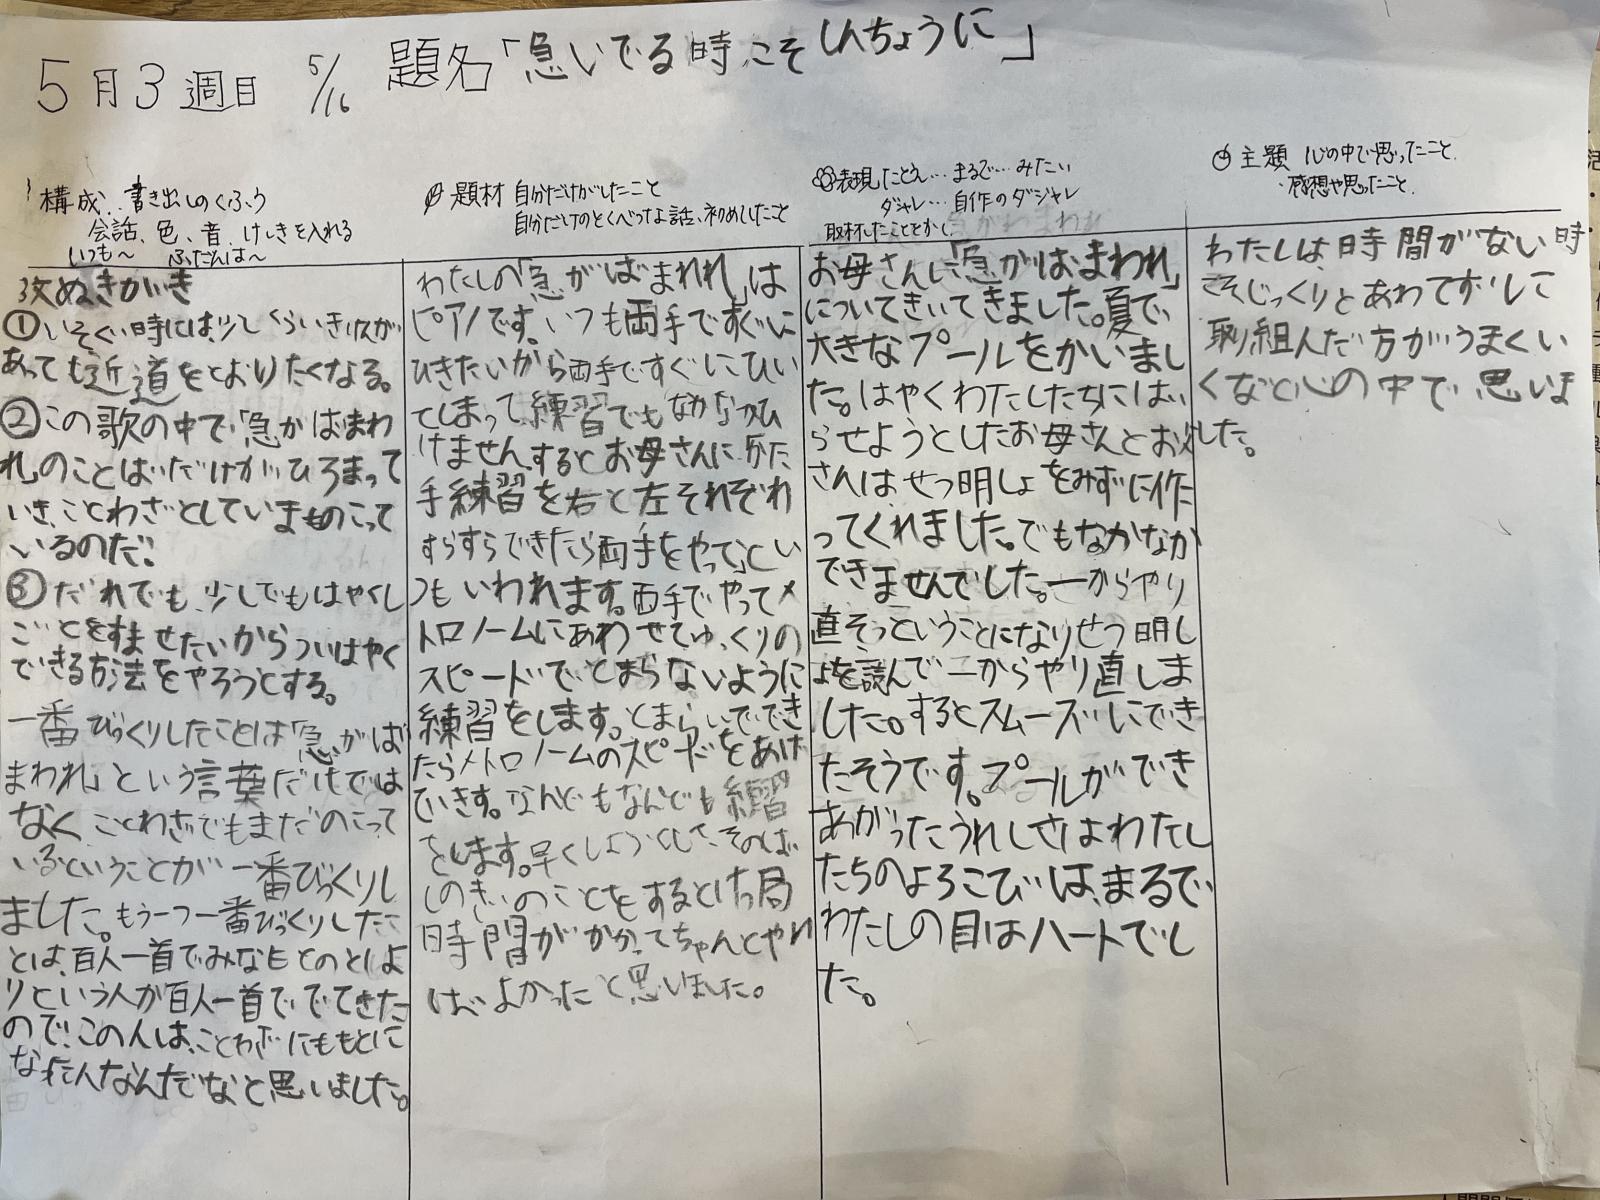 5月3週目 5/16 題名「急いでる時こそしんちょうに」
構成 書き出しのくふう
会話、色、音、けしきを入れる
いつも〜 ふだんは〜
3文ぬきがき
①いそぐ時には、少しくらいきけんが
あっても近道をとおりたくなる。
②この歌の中で「急がばまわ
れ」のことばだけがひろまって
いき、ことわざとしていまものこって
いるのだ。
③だれでも、少しでもはやくし
ごとをすませたいからついはやく
できる方法をやろうとする。
一番びっくりしたことは「急がば
まわれ」という言葉だけでは
なく、ことわざでもまだのこって
いるということが一番びっくりし
ました。もう一つ一番びっくりしたこ
とは、百人一首でみなもとのとしよ
りという人が百人一首ででてきた
ので、この人は、ことわざにももとに
なった人なんだなと思いました。
題材 自分だけがしたこと
自分だけのとくべつな話、初めてしたこと
わたしの「急がばまわれ」は
ピアノです。いつも両手ですぐに
ひきたいから両手ですぐにひい
てしまって練習でもなかなかひ
けません。するとお母さんに「かた
手練習を右と左それぞれ
すらすらできたら両手をやって」とい
つもいわれます。両手でやってメ
トロノームにあわせてゆっくりの
スピードでとまらないように
練習をします。とまらないでき
たらメトロノームのスピードをあげ
ていきます。なんどもなんども練習
をします。早くしようとして、そのば
しのぎのことをするとけっ局
時間がかかってちゃんとやれ
ばよかったと思いました。
表現 たとえ…まるで…みたい
ダジャレ…自作のダジャレ
取材したことをかく
お母さんに「急がばまわれ」
についてきいてきました。夏で
大きなプールをかいまし
た。はやくわたしたちにはい
らせようとしたお母さんとお父
さんはせつ明しょをみずに作
ってくれました。でもなかなか
できませんでした。一からやり
直そうということになりせつ明し
ょを読んで一からやり直しま
した。するとスムーズにでき
たそうです。プールができ
あがったうれしさはわたし
たちのよろこびは、まるで
わたしの目はハートでし
た。
主題 心の中で思ったこと
・感想や思ったこと
わたしは、時間がない時
こそじっくりとあわてずに
取り組んだ方がうまくい
くなと心の中で思いま
した。